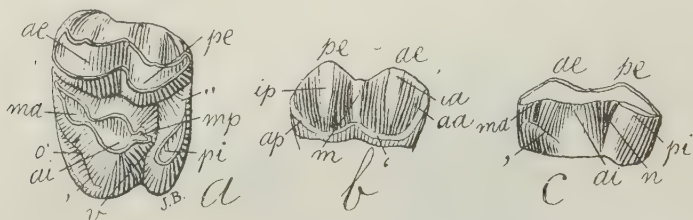 ae pe
ma " mp
o' ai pi
' v J.B. a
pe ae '
ip ia
ap m ' aa
b
ae pe
ma pi
' ai n
c